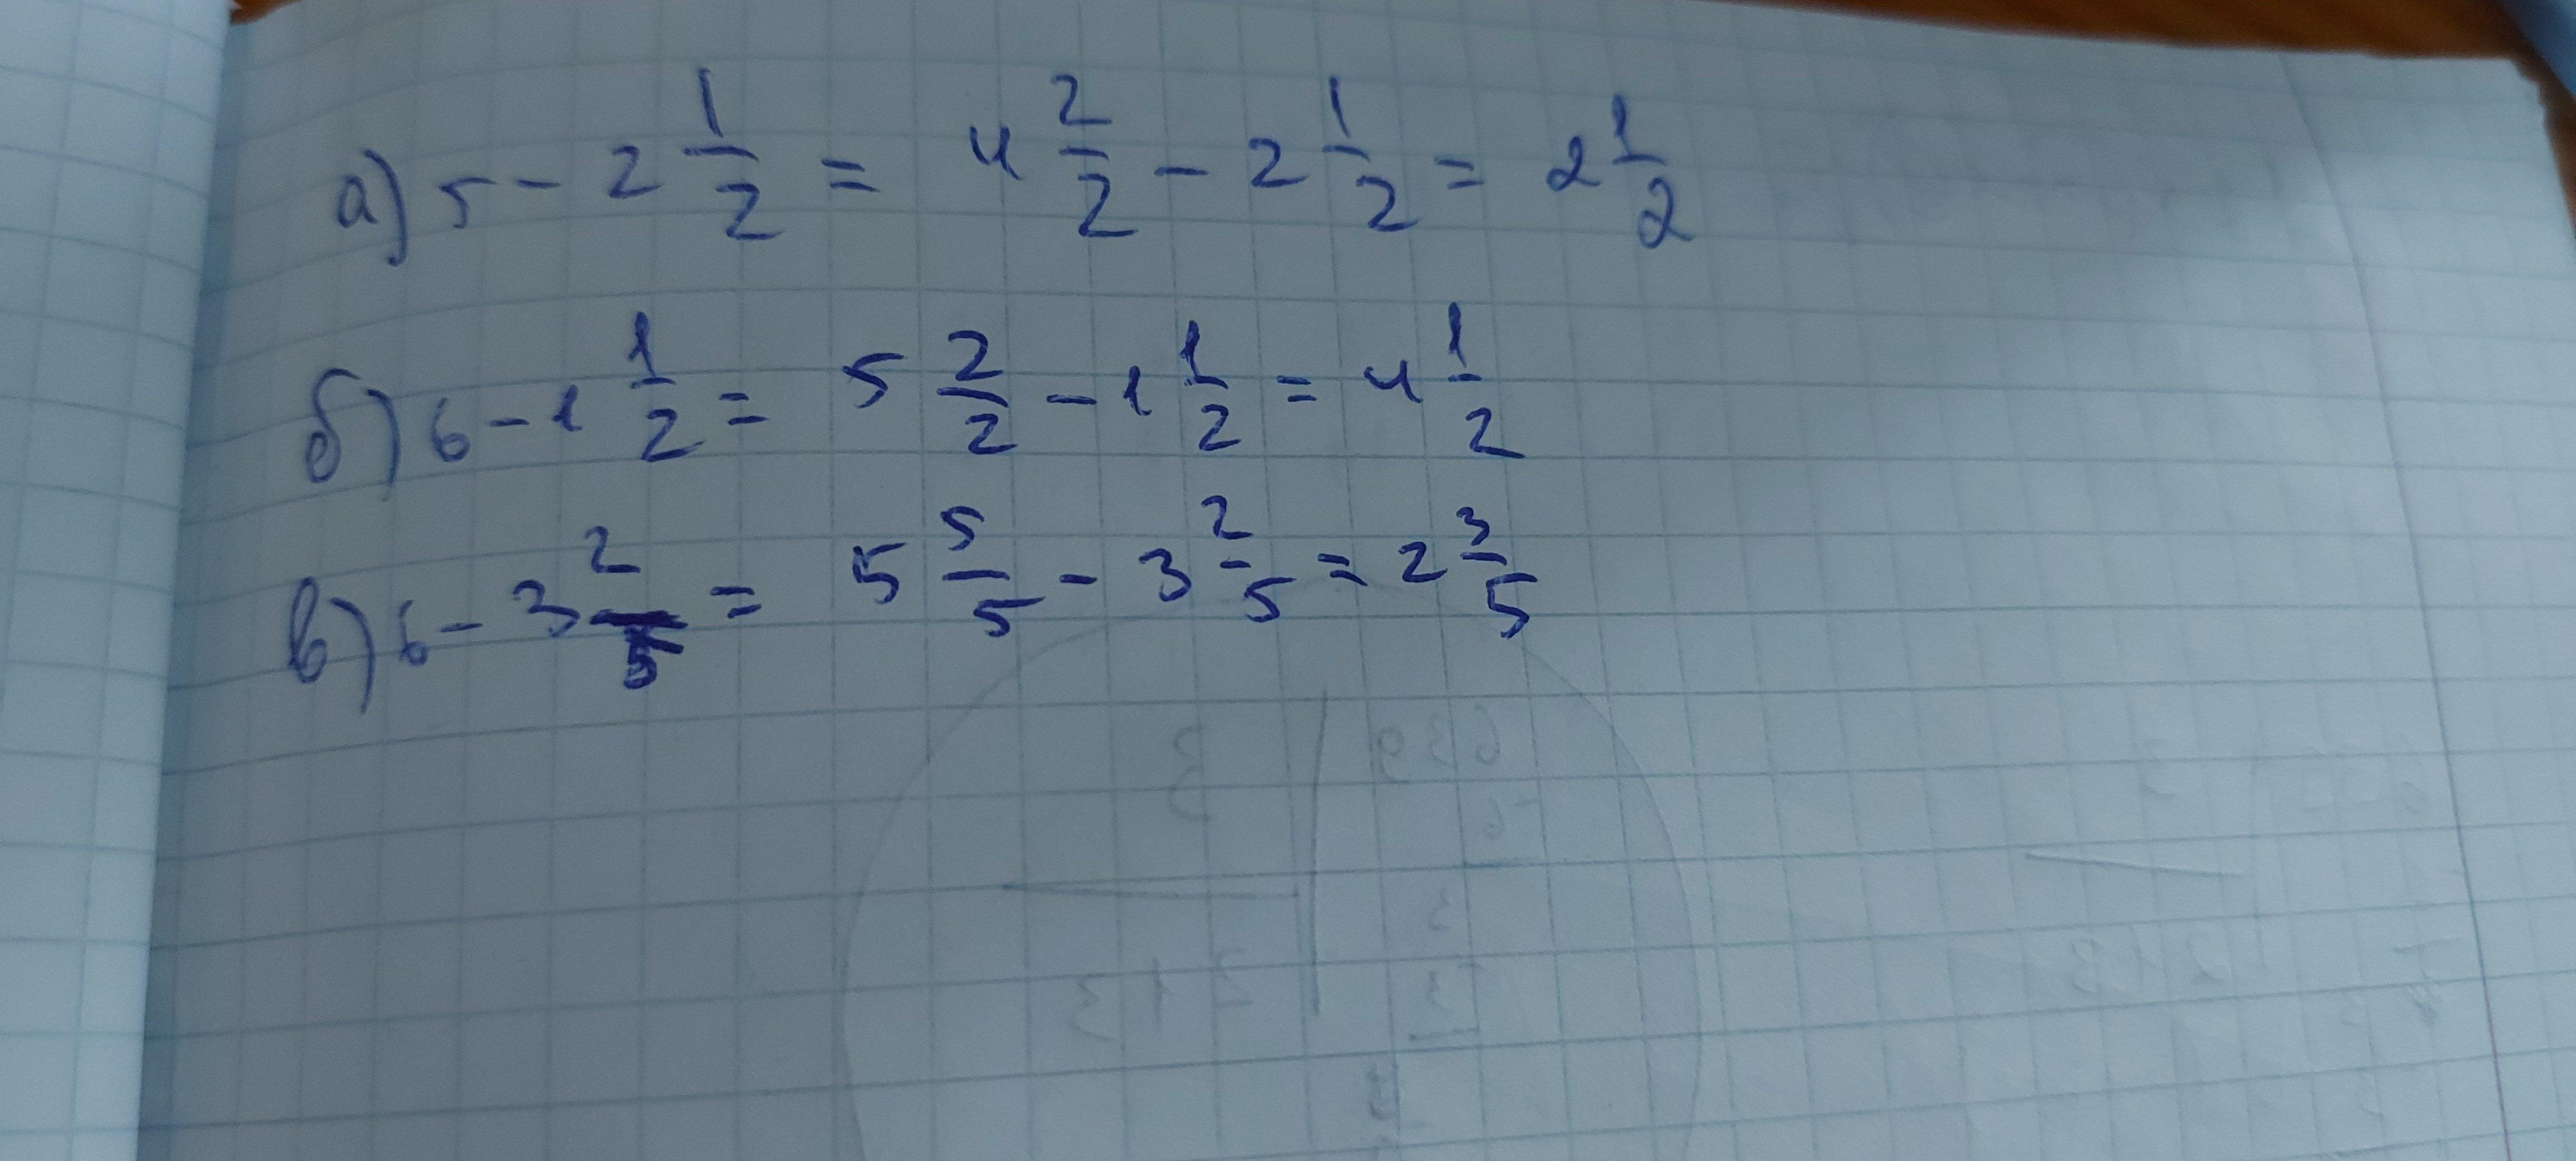 а) 5 - 2 1/2 = 4 2/2 - 2 1/2 = 2 1/2
б) 6 - 1 1/2 = 5 2/2 - 1 1/2 = 4 1/2
в) 6 - 3 2/5 = 5 5/5 - 3 2/5 = 2 3/5